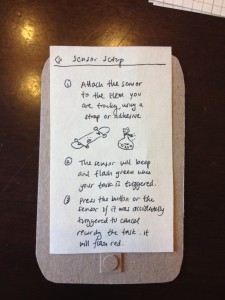 Sensor Setup
① Attach the sensor
to the item you
are tracking using a
strap or adhesive
② The sensor will beep
and flash green when
your task is triggered.
③ Press the button on the
sensor if it was accidentally
triggered to cancel
recording the task. it
will flash red.